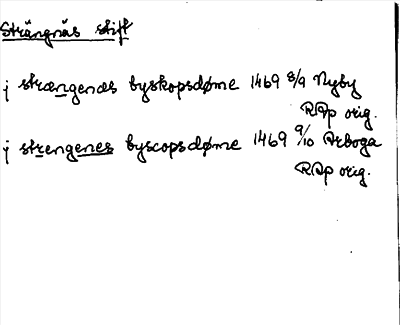 Strängnäs stift
j strængenæs byskopsdøme 1469 8/9 Nyby
RAp orig.
j strengenes byscopsdøme 1469 9/10 Arboga
RAp orig.